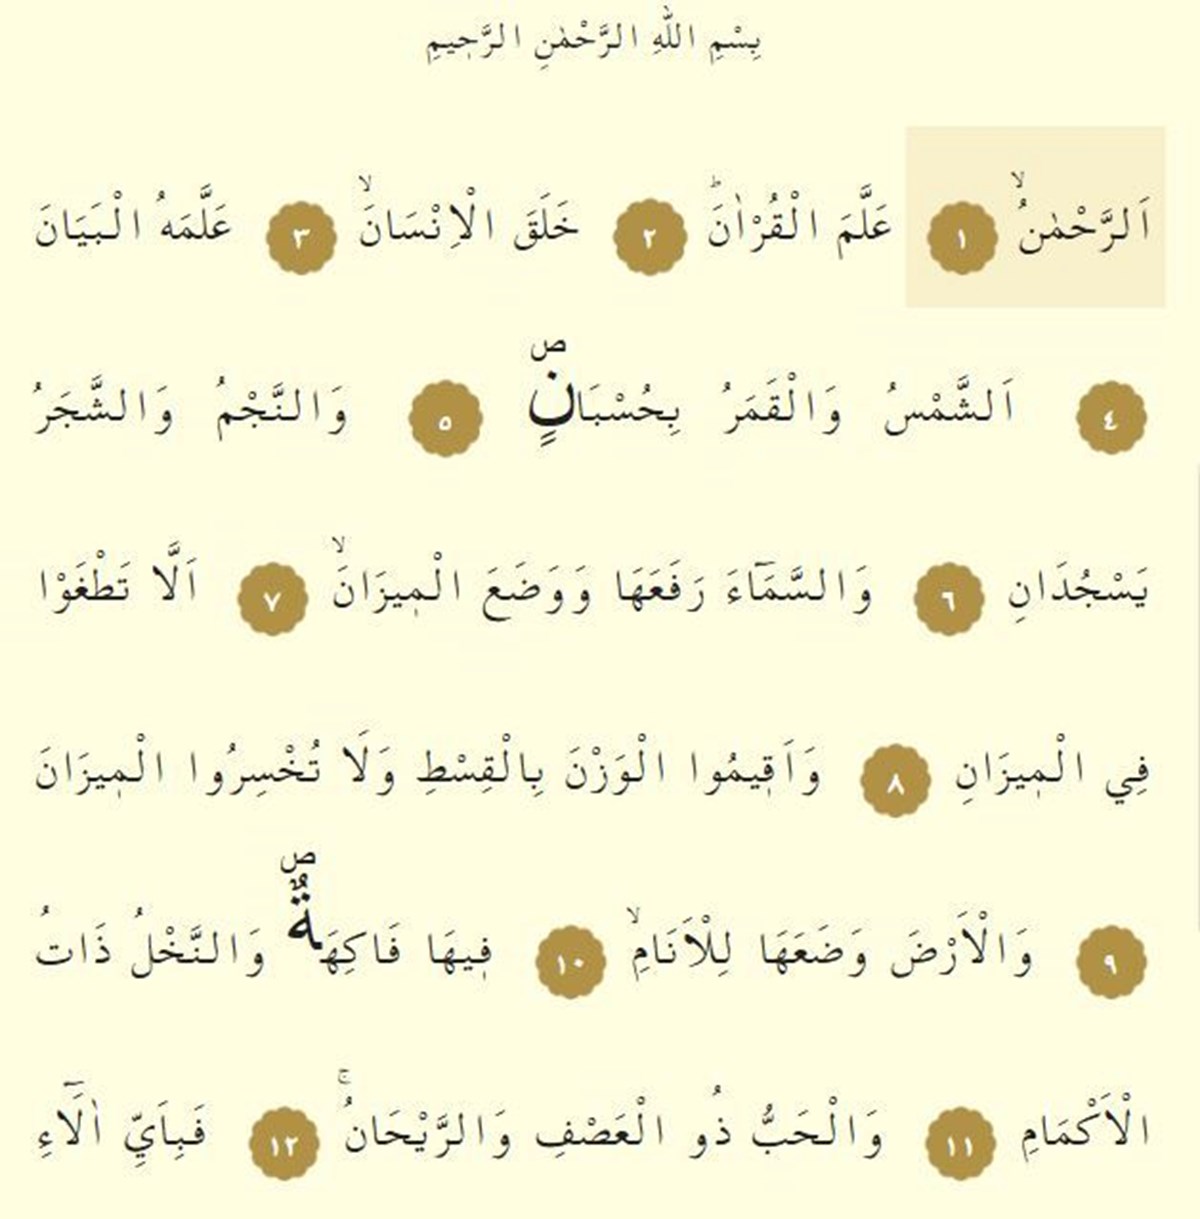 بِسْمِ اللّٰهِ الرَّحْمٰنِ الرَّحٖيمِ
اَلرَّحْمٰنُۙ ١ عَلَّمَ الْقُرْاٰنَؕ ٢ خَلَقَ الْاِنْسَانَۙ ٣ عَلَّمَهُ الْبَيَانَ
٤ اَلشَّمْسُ وَالْقَمَرُ بِحُسْبَانٍࣕ ٥ وَالنَّجْمُ وَالشَّجَرُ
يَسْجُدَانِ ٦ وَالسَّمَٓاءَ رَفَعَهَا وَوَضَعَ الْمٖيزَانَۙ ٧ اَلَّا تَطْغَوْا
فِي الْمٖيزَانِ ٨ وَاَقٖيمُوا الْوَزْنَ بِالْقِسْطِ وَلَا تُخْسِرُوا الْمٖيزَانَ
٩ وَالْاَرْضَ وَضَعَهَا لِلْاَنَامِۙ ١٠ فٖيهَا فَاكِهَةٌࣕ وَالنَّخْلُ ذَاتُ
الْاَكْمَامِ ١١ وَالْحَبُّ ذُو الْعَصْفِ وَالرَّيْحَانُۚ ١٢ فَبِاَيِّ اٰلَٓاءِ